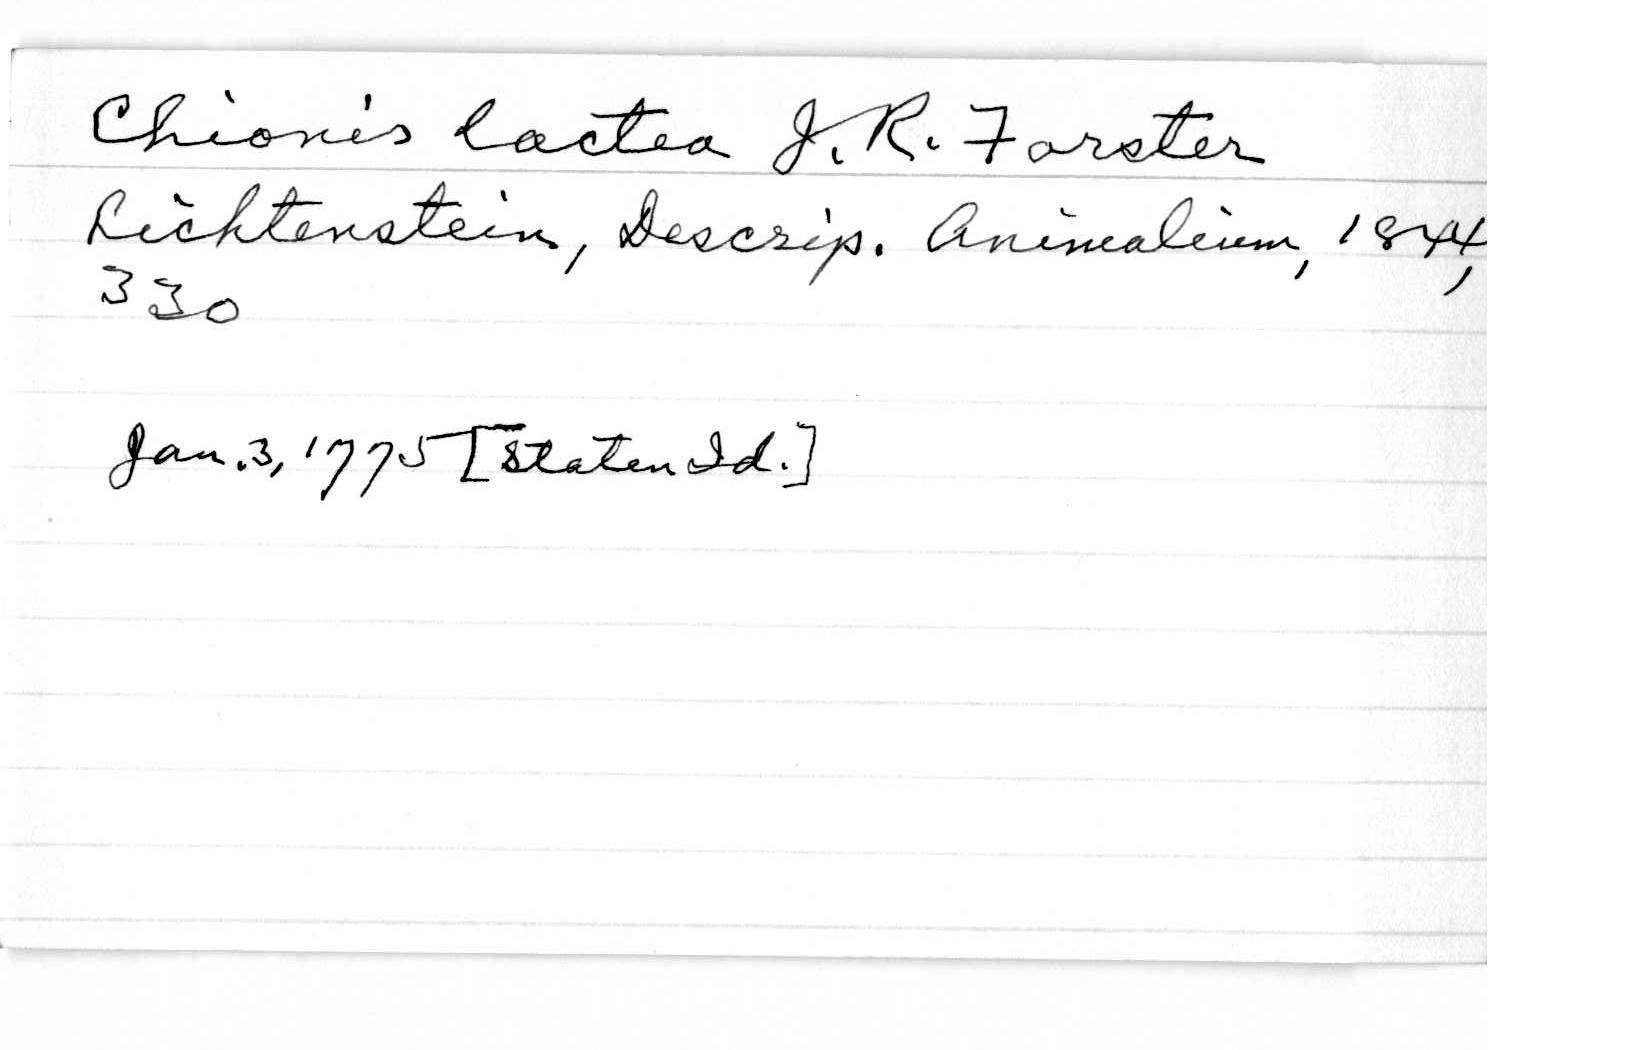 Chionis lactea J. R. Forster
Lichtenstein, Descrip. Animalium, 1844,
330
Jan. 3, 1775 [Staten Id.]